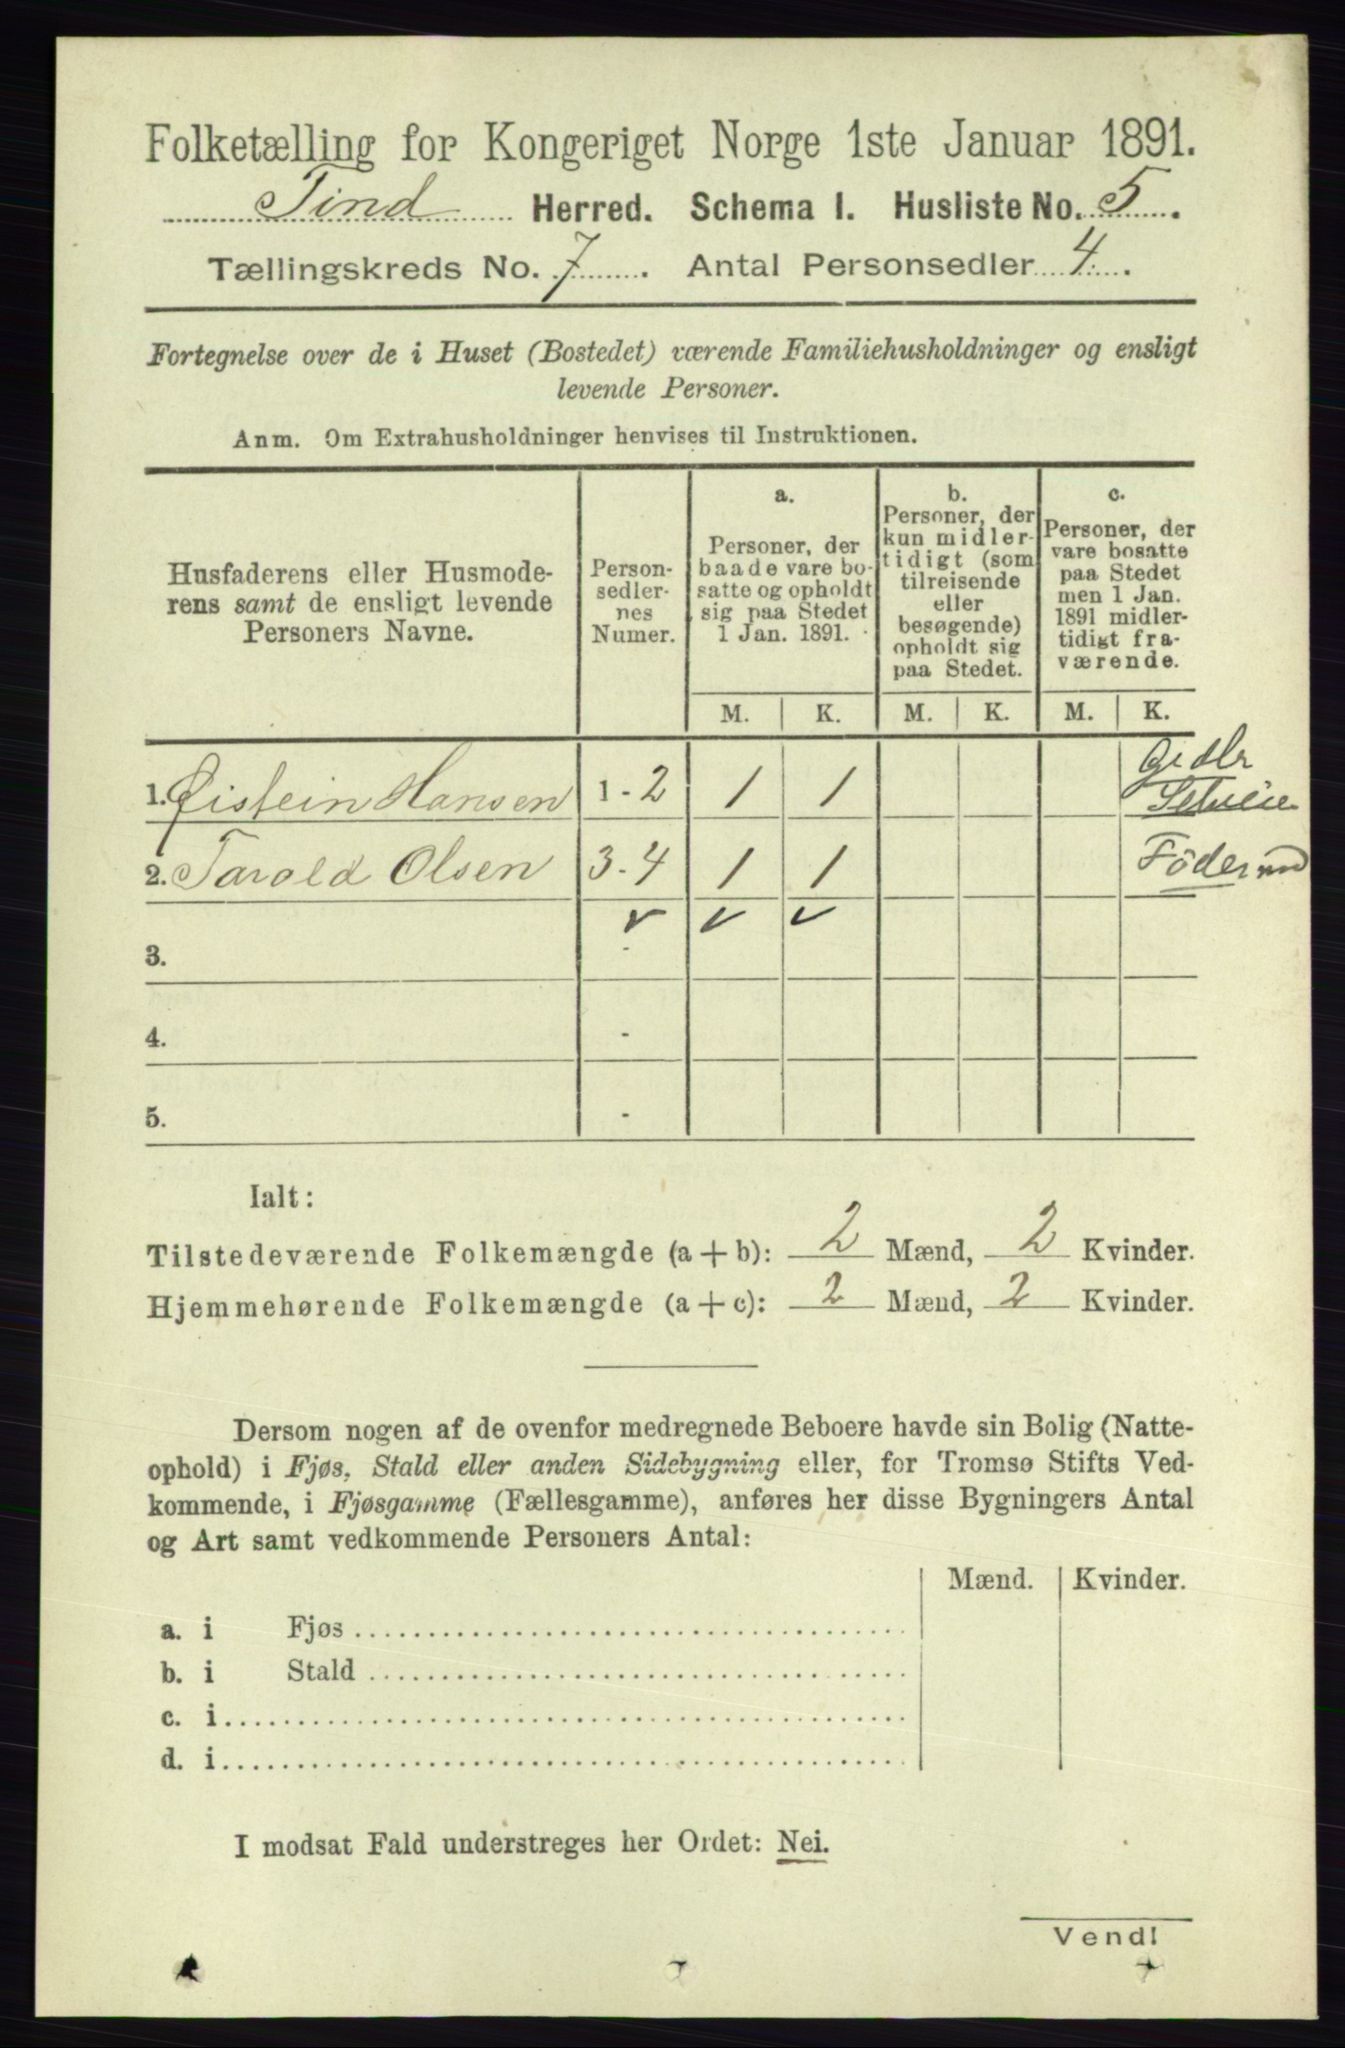 Folketælling for Kongeriget Norge 1ste Januar 1891.
Tind Herred. Schema I. Husliste No. 5.
Tællingskreds No. 7. Antal Personsedler 4.
Fortegnelse over de i Huset (Bostedet) værende Familiehusholdninger og ensligt
levende Personer.
Anm. Om Extrahusholdninger henvises til Instruktionen.
Husfaderens eller Husmode-
rens samt de ensligt levende
Personers Navne.
Person-
sedler-
nes
Numer.
a.
Personer, der
baade vare bo-
satte og opholdt
sig paa Stedet
1 Jan. 1891.
b.
Personer, der
kun midler-
tidigt (som
tilreisende
eller
besøgende)
opholdt sig
paa Stedet.
c.
Personer, der
vare bosatte
paa Stedet
men 1 Jan.
1891 midler-
tidigt fra-
værende.
M. K. M. K. M. K.
1. Øistein Hansen 1-2 1 1
2. Tarold Olsen 3-4 1 1
3. -
4. -
5. -
Ialt:
Tilstedeværende Folkemængde (a+b): 2 Mænd, 2 Kvinder.
Hjemmehørende Folkemængde (a+c): 2 Mænd, 2 Kvinder.
Dersom nogen af de ovenfor medregnede Beboere havde sin Bolig (Natte-
ophold) i Fjøs, Stald eller anden Sidebygning eller, for Tromsø Stifts Ved-
kommende, i Fjøsgamme (Fællesgamme), anføres her disse Bygningers Antal
og Art samt vedkommende Personers Antal:
Mænd. Kvinder.
a. i Fjøs
b. i Stald
c. i
d. i
I modsat Fald understreges her Ordet: Nei.
Vend!